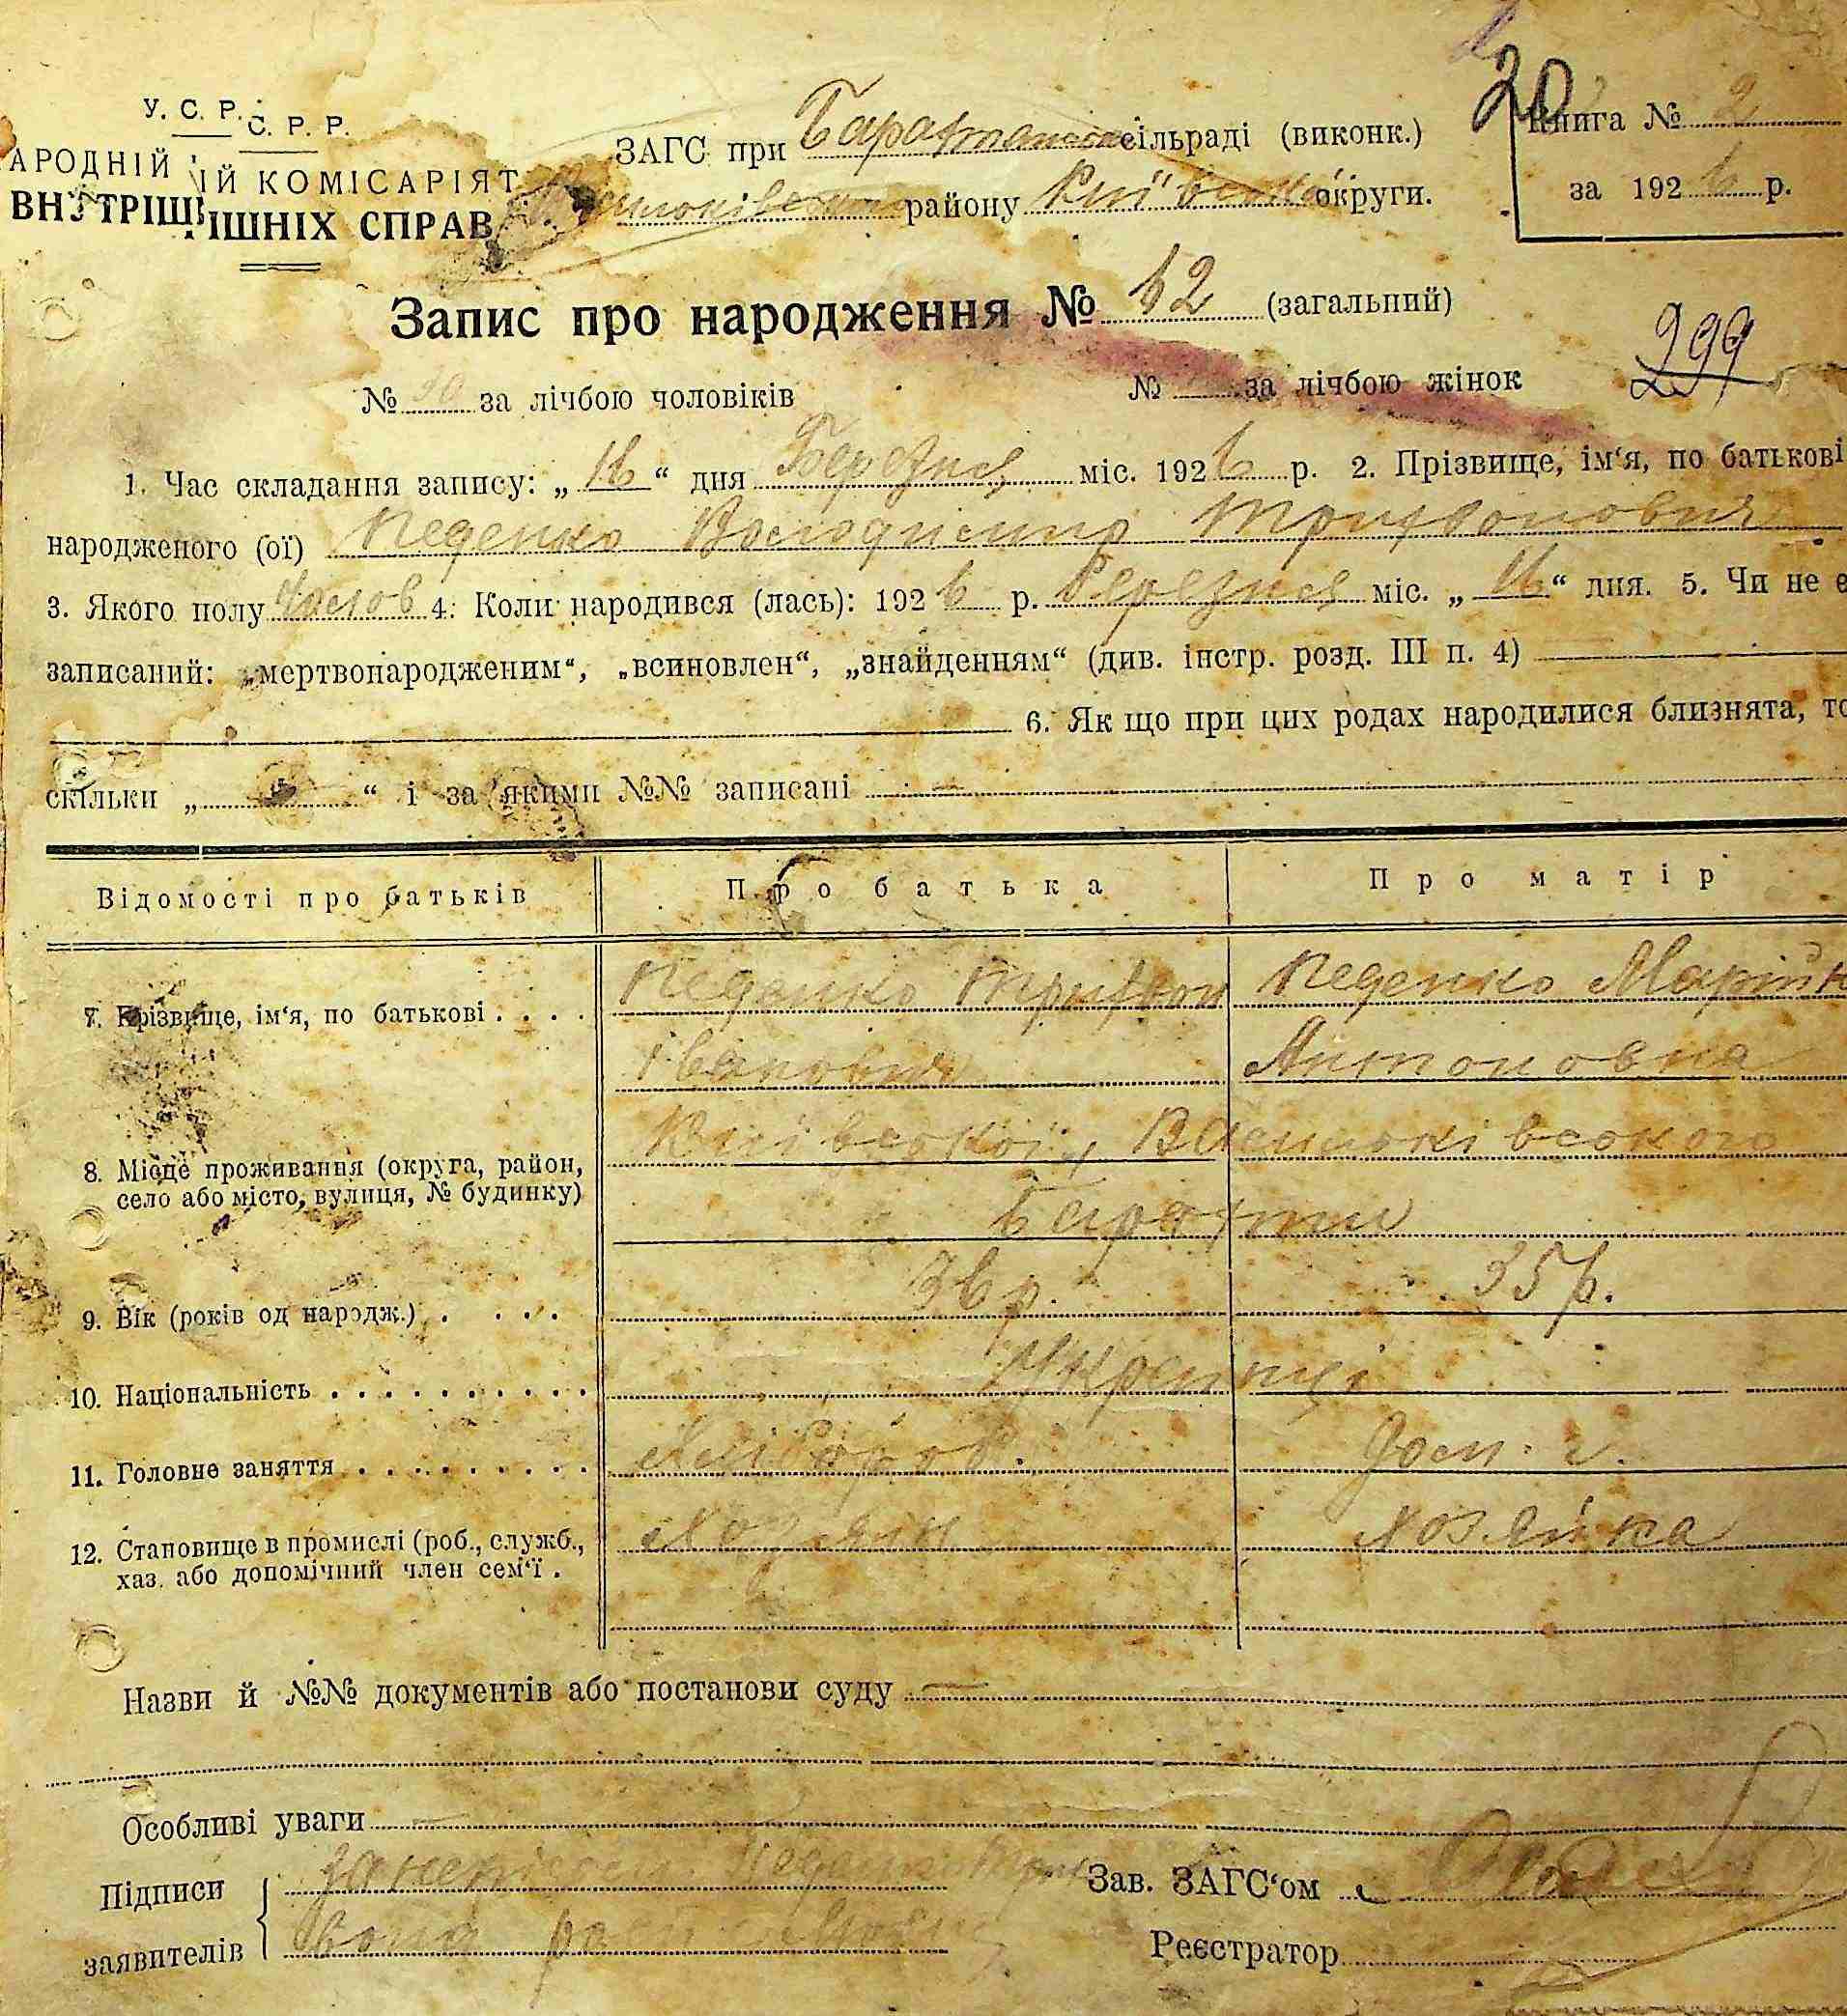 У. С. Р. Р.
С. Р. Р.
АРОДНІЙ
ІЙ КОМІСАРІЯТ
ВНУТРІШ
ІШНІХ СПРАВ
20
ЗАГС при сільраді (виконк.)
району Київської округи.
Книга № 2
за 1926 р.
Запис про народження № 62 (загальний)
299
№ 30 за лічбою чоловіків № за лічбою жінок
1. Час складання запису: „16“ дня Березня міс. 1926 р. 2. Прізвище, ім‘я, по батькові
народженого (ої) Педенко Володимир Трифонович
3. Якого полу Чолов 4. Коли народився (лась): 1926 р. Березня міс. „16“ дня. 5. Чи не є
записаний: „мертвонародженим“, „всиновлен“, „знайденням“ (див. інстр. розд. III п. 4)
6. Як що при цих родах народилися близнята, то
скільки „ “ і за якими №№ записані —
Відомості про батьків Про батька Про матір
7. Прізвище, ім‘я, по батькові . . . . Педенко Трифон Педенко Марія
Іванович Антоновна
8. Місце проживання (округа, район, Київської, Васильківського
село або місто, вулиця, № будинку) Барахти
9. Вік (років од народж.) . . . . . 36 р. 35 р.
10. Національність . . . . . . . . . . Українці
11. Головне заняття . . . . . . . . . Хлібороб. Дом. г.
12. Становище в промислі (роб., служб., Хозяин Хозяйка
хаз. або допомічний член сем‘ї .
Назви й №№ документів або постанови суду —
Особливі уваги —
Підписи Педенко
заявителів
Зав. ЗАГС‘ом
Реєстратор